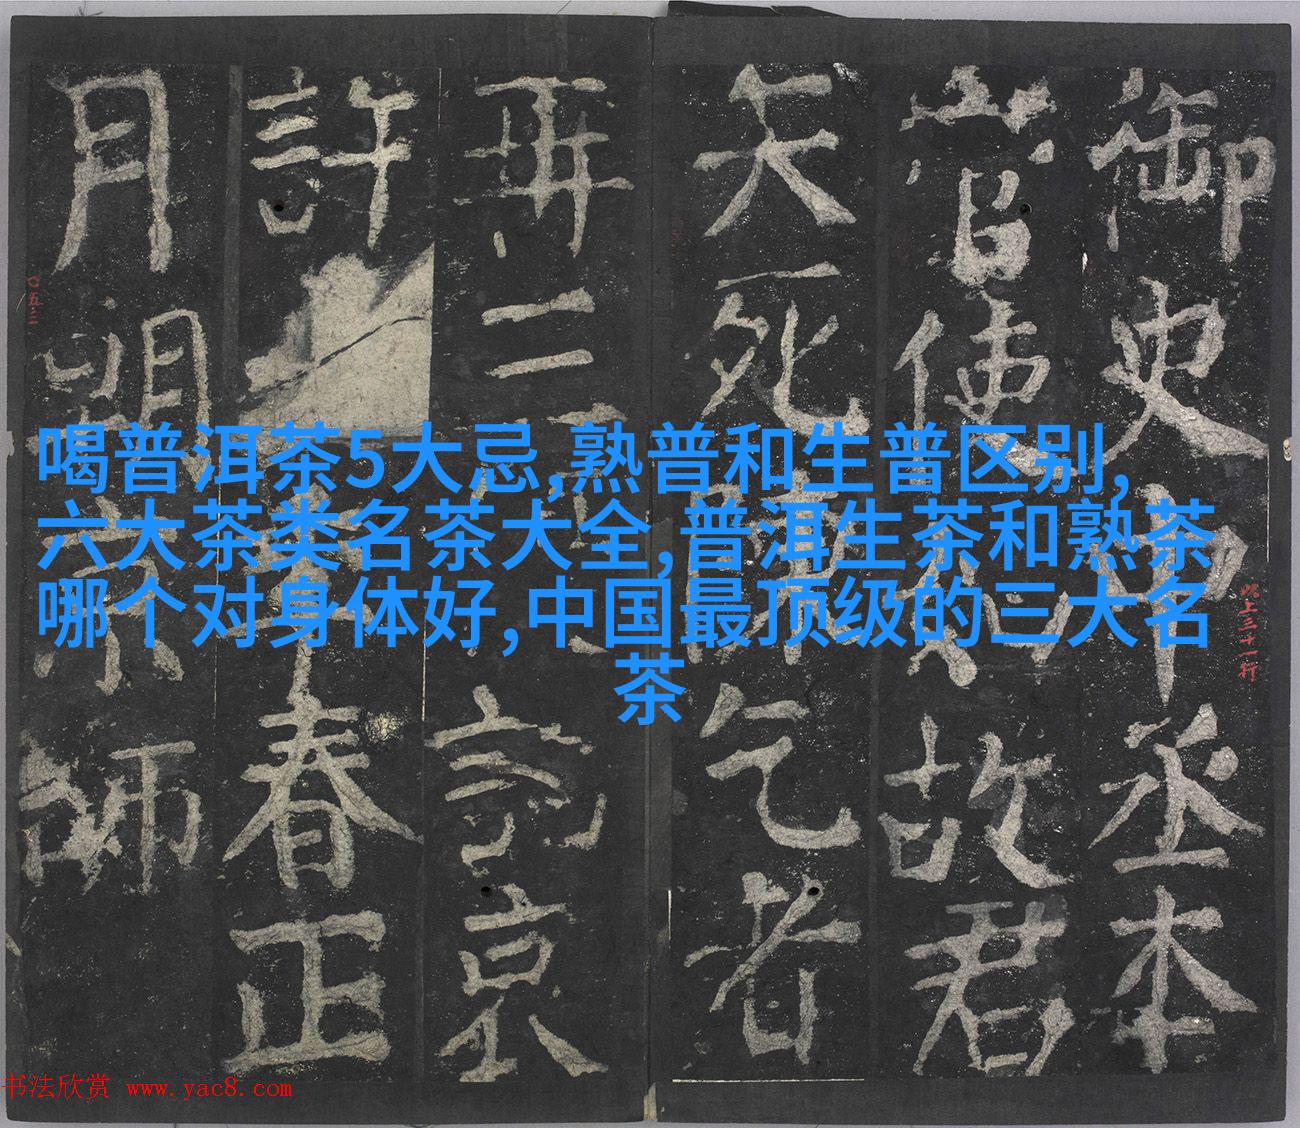 喝普洱茶5大忌,熟普和生普区别,
六大茶类名茶大全,普洱生茶和熟茶
哪个对身体好,中国最顶级的三大名
茶
御史中丞本
使故君
死乞者
再二京
許春正
月朝京師
此上三十一行
〇五三
书法欣赏 www.yac8.com